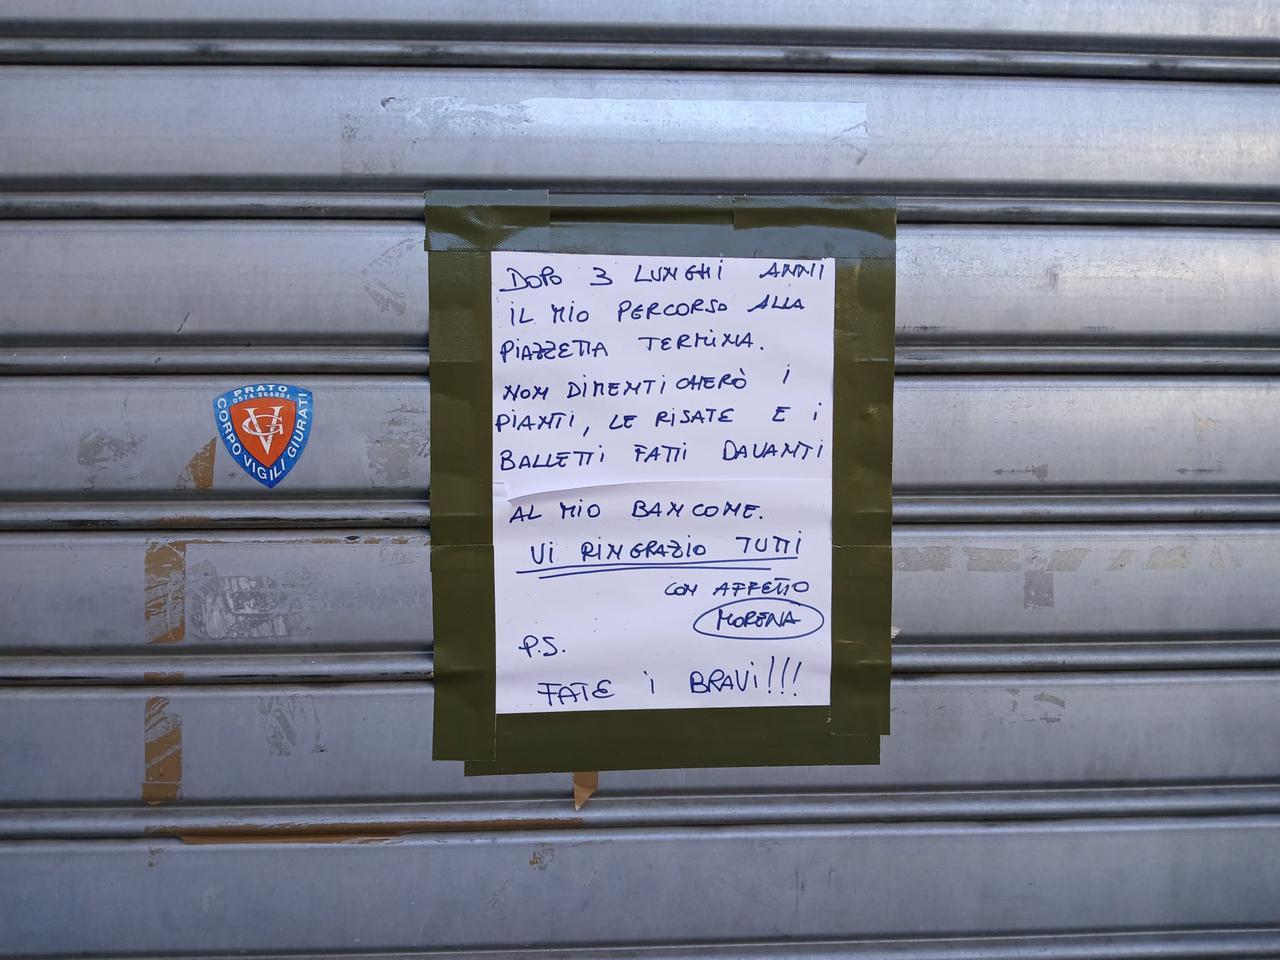 DOPO 3 LUNGHI ANNI
IL MIO PERCORSO ALLA
PIAZZETTA TERMINA.
NON DIMENTICHERÒ I
PIANTI, LE RISATE E I
BALLETTI FATTI DAVANTI
AL MIO BANCONE.
VI RINGRAZIO TUTTI
CON AFFETTO
MORENA
P.S.
FATE I BRAVI!!!
PRATO
0574 564901
CORPO VIGILI GIURATI
VG